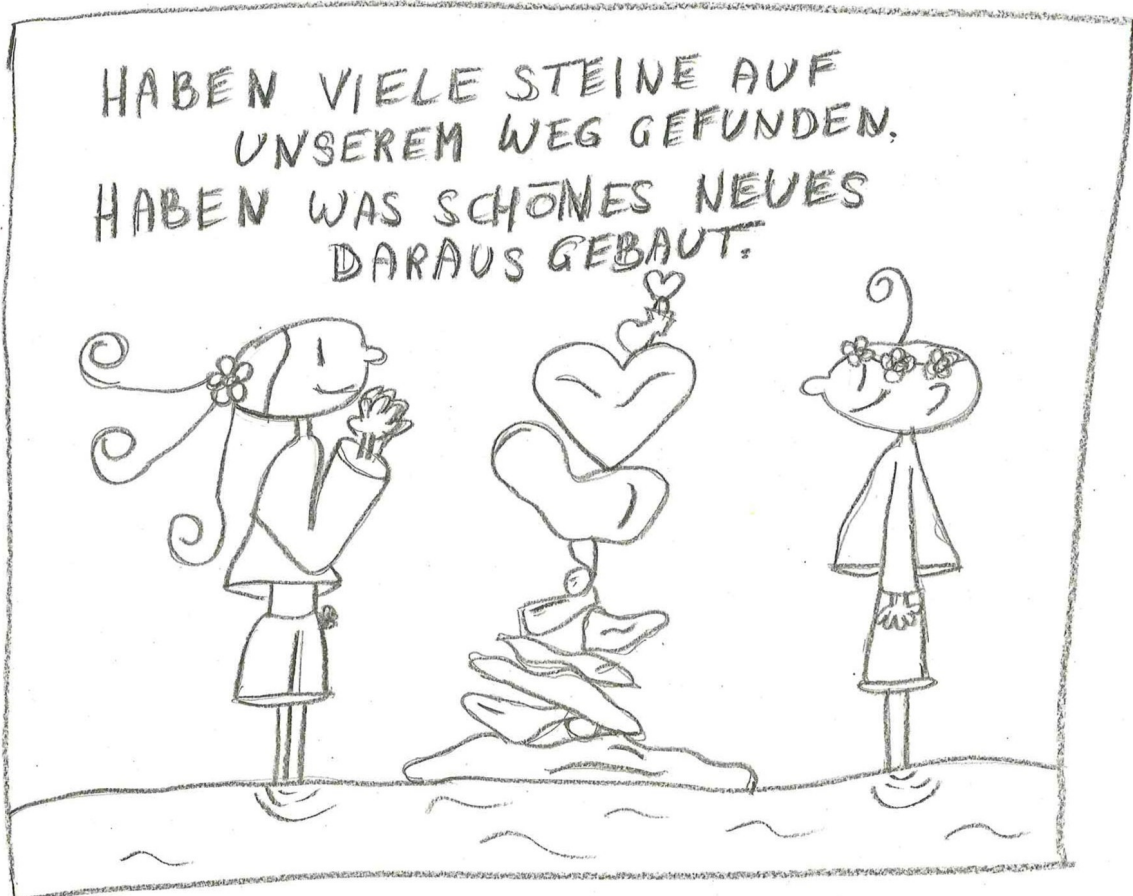 HABEN VIELE STEINE AUF
UNSEREM WEG GEFUNDEN.
HABEN WAS SCHÖNES NEUES
DARAUS GEBAUT.